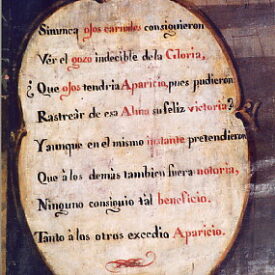 Sinunca ojos carnales consiguieron
Vèr el gozo indecible dela Gloria,
¿Que ojos tendria Aparicio, pues pudieron
Rastreàr de esa Alma su feliz victoria?
Y aunque en el mismo instante pretendieron
Que à los demàs tambien fuera notoria,
Ninguno consiguio tàl beneficio.
Tanto à los otros excedio Aparicio.